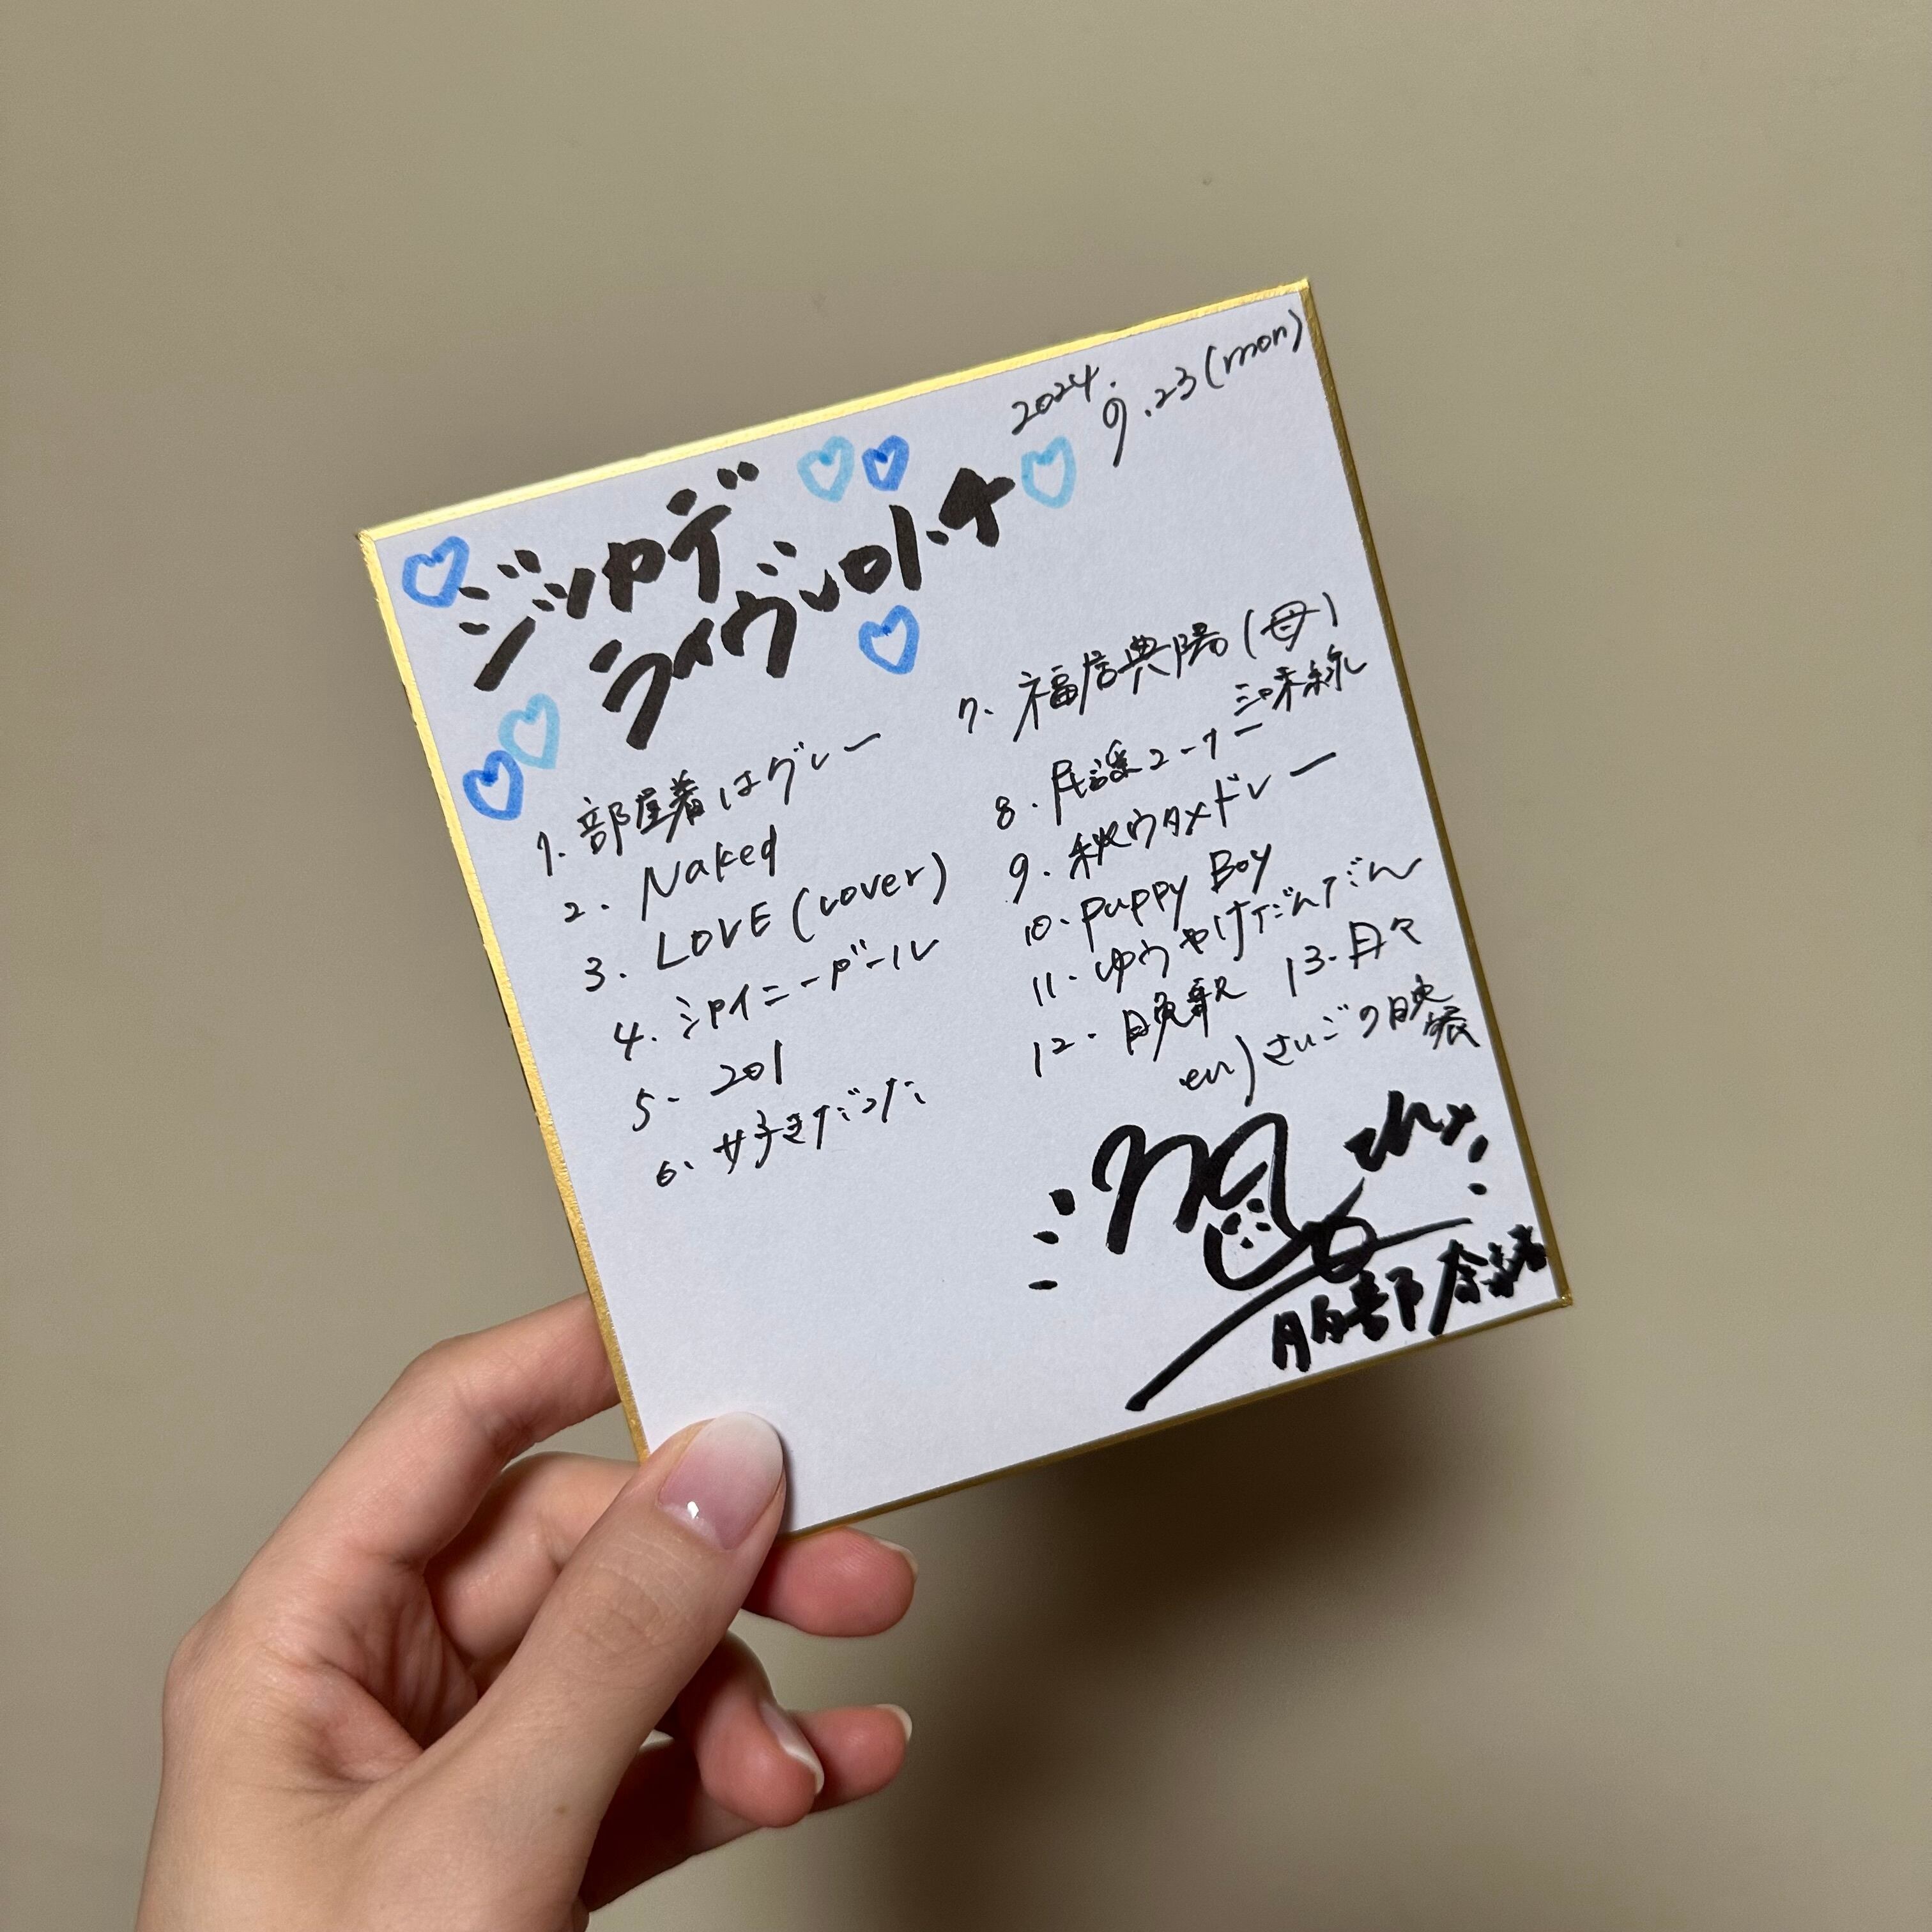 2024.
9.23(mon)
ジャムデ
ライヴvol.4
1. 部屋着はグレー
2. Naked
3. LOVE (cover)
4. シャイニーガール
5. 201
6. 好きだった
7. 福居典陽(母)
8. 民謡コーナー 三味線
9. 秋ウタメドレー
10. puppy Boy
11. ゆうやけだんだん
12. 晩駅 13. 日々
en) さいごの映
服部